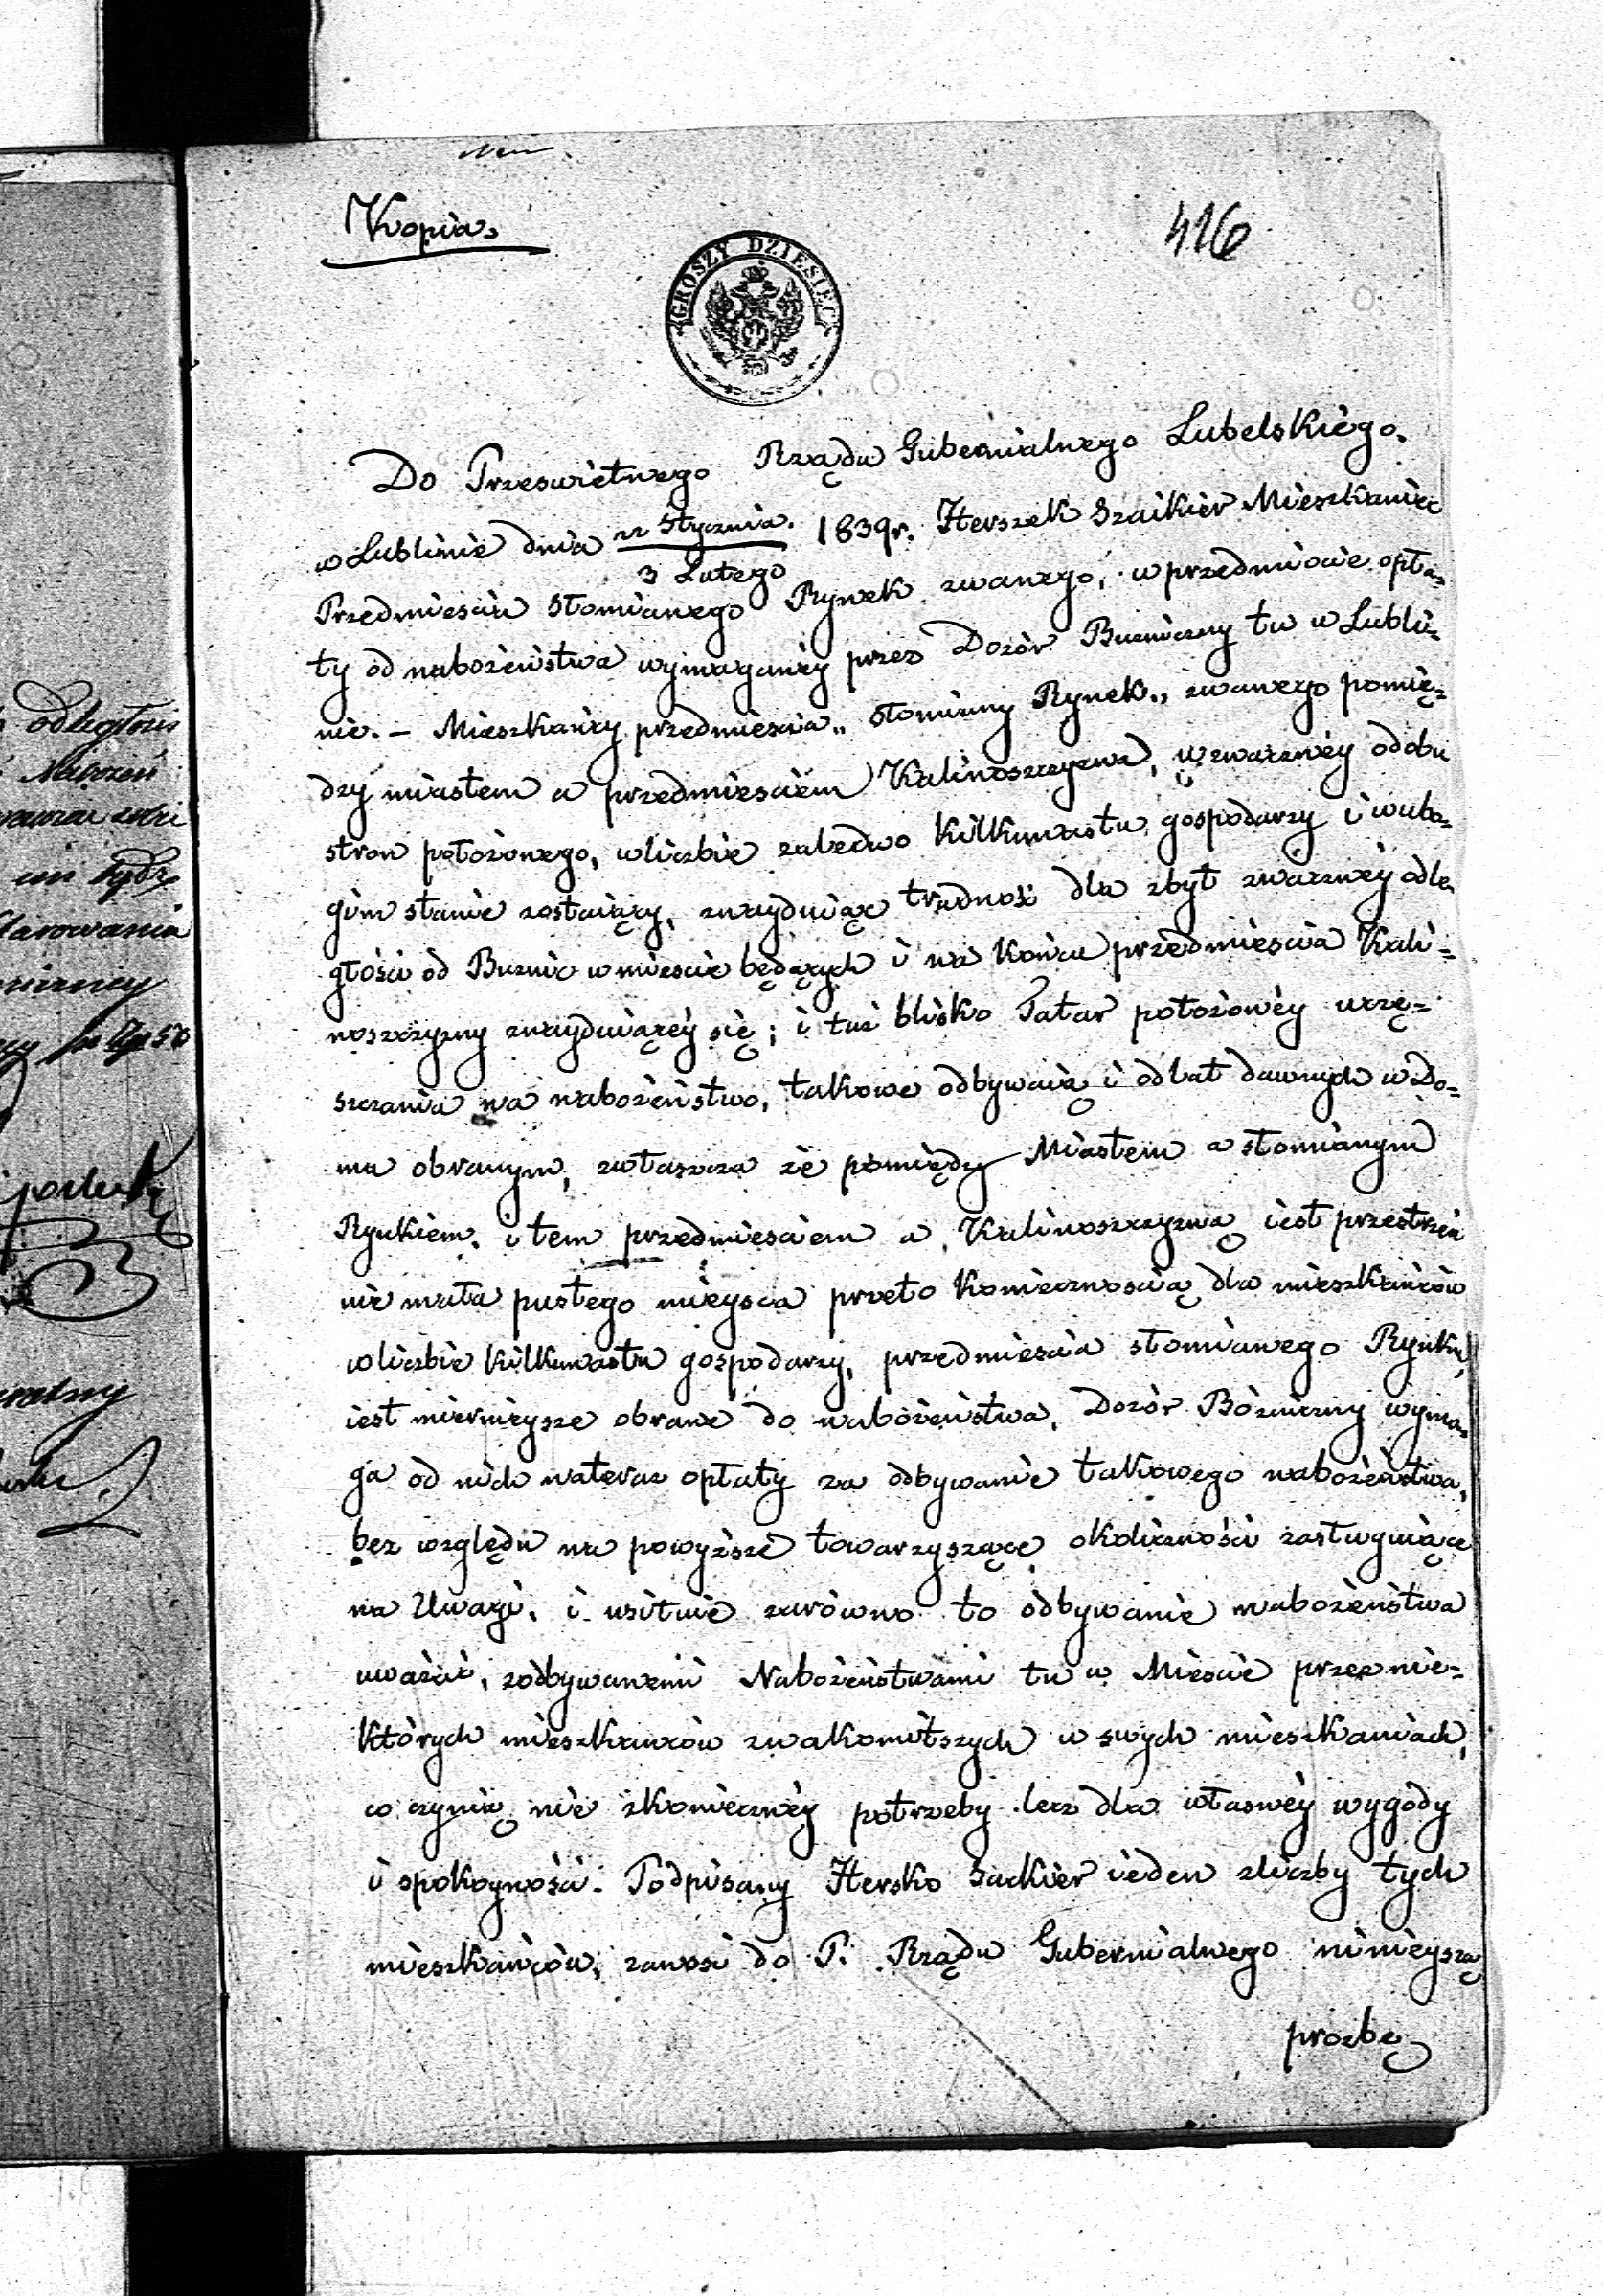 Kopia
416
GROSZY DZIESIĘĆ
Do Przeswietnego Rządu Gubernialnego Lubelskiego.
w Lublinie dnia 22 Stycznia. 1839r. Herszek Szaikier Mieszkaniec
3 Lutego
Przedmiescia Słomianego Rynek zwanego, w przedmiocie opła-
ty od nabożeństwa wymaganey przez Dozór Buzniczny tu w Lubli-
nie. – Mieszkańcy przedmiescia „ Słomiany Rynek „ zwanego pomię-
dzy miastem a przedmiesciem Kalinoszczyzna, w znaczney od obu
stron położonego, w liczbie zaledwo kilkunastu gospodarzy i w ubo-
gim stanie zostaiący, znayduiąc trudność dla zbyt znaczney odle
głości od Buznic w miescie będących i na końcu przedmiescia Kali-
noszczyzny znayduiącey się; i tuż blisko Tatar położoney uczę-
szczania na nabożeństwo, takowe odbywaią i od lat dawnych w Do-
mu obranym, zwłaszcza że pomiędzy Miastem a słomianym
Rynkiem, i tem przedmiesciem a Kalinoszczyzną iest przestrzeń
nie mała pustego mieysca przeto koniecznoscią dla mieszkańców
w liczbie kilkunastu gospodarzy, przedmiescia słomianego Rynku,
iest mieysce obrane do nabożeństwa, Dozór Bóżniczny wyma-
ga od nich nateraz opłaty za odbywanie takowego nabożeństwa,
bez względu na powyższe towarzyszące okoliczności zasługuiące
na Uwagi, i usiłuie zarówno to odbywanie nabożeństwa
uważać, z odbywanemi Nabożeństwami tu w Miescie przez nie-
których mieszkańców znakomitszych w swych mieszkaniach,
co czynią nie z konieczney potrzeby lecz dla własney wygody
i spokoyności. Podpisany Hersko Sackier ieden z liczby tych
mieszkańców, zanosi do P. Rządu Gubernialnego ninieyszą
prozbę